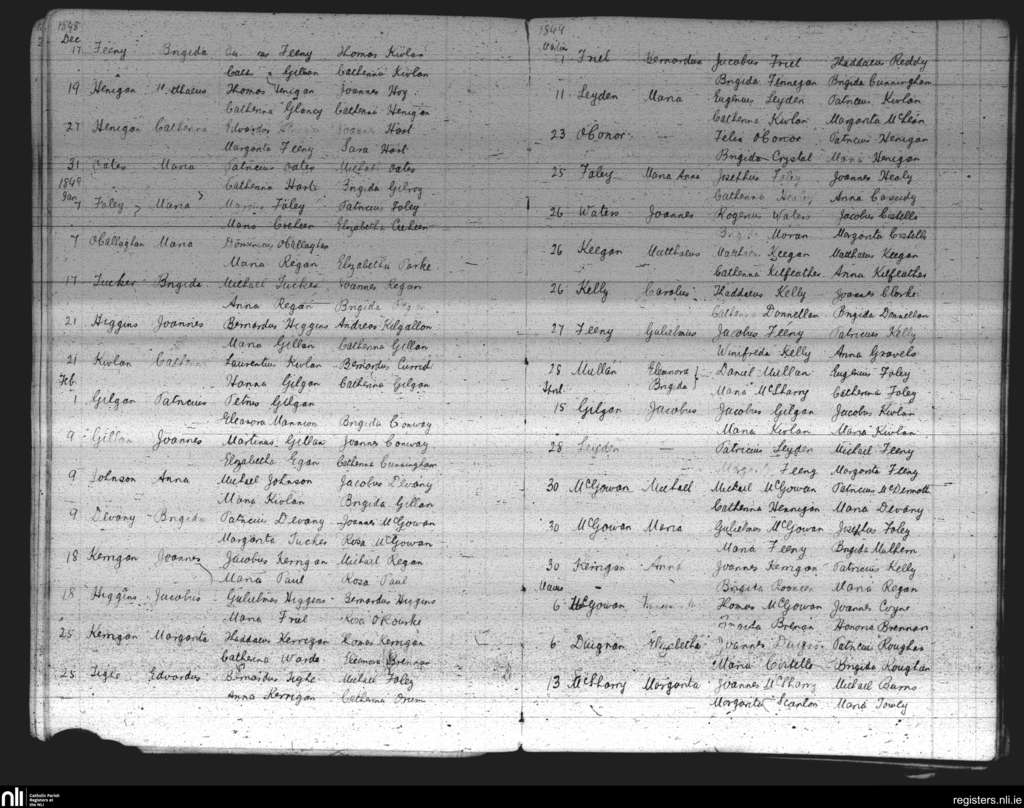 1848
Dec
17 Feeny Brigida Feeny Thomas Kivlan
Gillan Catherina Kivlan
19 Henigan Matthaeus Thomas Henigan Joannes Hoy
Catherina Glancy Catherina Henigan
27 Henigan Catherina Edvardus Joannes Hart
Margarita Feeny Sara Hart
31 Oates Maria Patricius Oates Michael Oates
1849 Catherina Hart Brigida Gilroy
Jan
7 Foley Maria Marcus Foley Patricius Foley
Maria Creheen Elizabetha Creheen
7 OCallaghan Maria Dominicus OCallaghan
Maria Regan Elizabetha Parke
17 Tucker Brigida Michael Tucker Joannes Regan
Anna Regan Brigida
21 Higgins Joannes Bernardus Higgins Andreas Kilgallon
Maria Gillan Catherina Gillan
21 Kivlan Laurentius Kivlan Bernardus Currid
Feb Hanna Gilgan Catherina Gilgan
1 Gilgan Patricius Petrus Gilgan
Eleanora Mannion Brigida Conway
9 Gillan Joannes Martinus Gillan Joannes Conway
Elizabetha Egan Catherina Cunningham
9 Johnson Anna Michael Johnson Jacobus Devany
Maria Kivlan Brigida Gillan
9 Devany Brigida Patricius Devany Joannes McGowan
Margarita Tucker Rosa McGowan
18 Kerrigan Joannes Jacobus Kerrigan Michael Regan
Maria Paul Rosa Paul
18 Higgins Jacobus Gulielmus Higgins Bernardus Higgins
Maria Friel Rosa O'Rourke
25 Kerrigan Margarita Thaddaeus Kerrigan Thomas Kerrigan
Catherina Warde Eleanora Brennan
25 Tighe Edvardus Bernardus Tighe Michael Foley
Anna Kerrigan Catherina
1849
1 Friel Bernardus Jacobus Friel Thaddaeus Reddy
Brigida Finnegan Brigida Cunningham
11 Leyden Maria Eugenius Leyden Patricius Kivlan
Catherina Kivlan Margarita McLean
23 OConor Felix OConor Patricius Henigan
Brigida Crystal Maria Henigan
25 Foley Maria Anna Josephus Foley Joannes Healy
Catherina Healy Anna Cassidy
26 Waters Joannes Rogerius Waters Jacobus Costello
Moran Margarita Costello
26 Keegan Matthaeus Matthaeus Keegan Matthaeus Keegan
Catherina Kilfeather Anna Kilfeather
26 Kelly Carolus Thaddaeus Kelly Joannes Clarke
Catherina Donnellan Brigida Donnellan
27 Feeny Gulielmus Jacobus Feeny Patricius Kelly
Winifreda Kelly Anna
28 Mullan Eleanora Daniel Mullan Eugenius Foley
Brigida Maria McSharry Catherina Foley
15 Gilgan Jacobus Jacobus Gilgan Jacobus Kivlan
Maria Kivlan Maria Kivlan
28 Leyden Patricius Leyden Michael Feeny
Feeny Margarita Feeny
30 McGowan Michael Michael McGowan Patricius McDermott
Catherina Hennigan Maria Devany
30 McGowan Maria Gulielmus McGowan Josephus Foley
Maria Feeny Brigida Mulhern
30 Kerrigan Anna Joannes Kerrigan Patricius Kelly
Brigida Maria Regan
6 McGowan Thomas McGowan Joannes Coyne
Brigida Brenan Honoria Brennan
6 Duignan Elizabetha Joannes Patricius Roughan
Maria Costello Brigida Roughan
13 McSharry Margarita Joannes McSharry Michael Burns
Margarita Scanlon Maria
nli Catholic Parish
Registers at
the NLI
registers.nli.ie